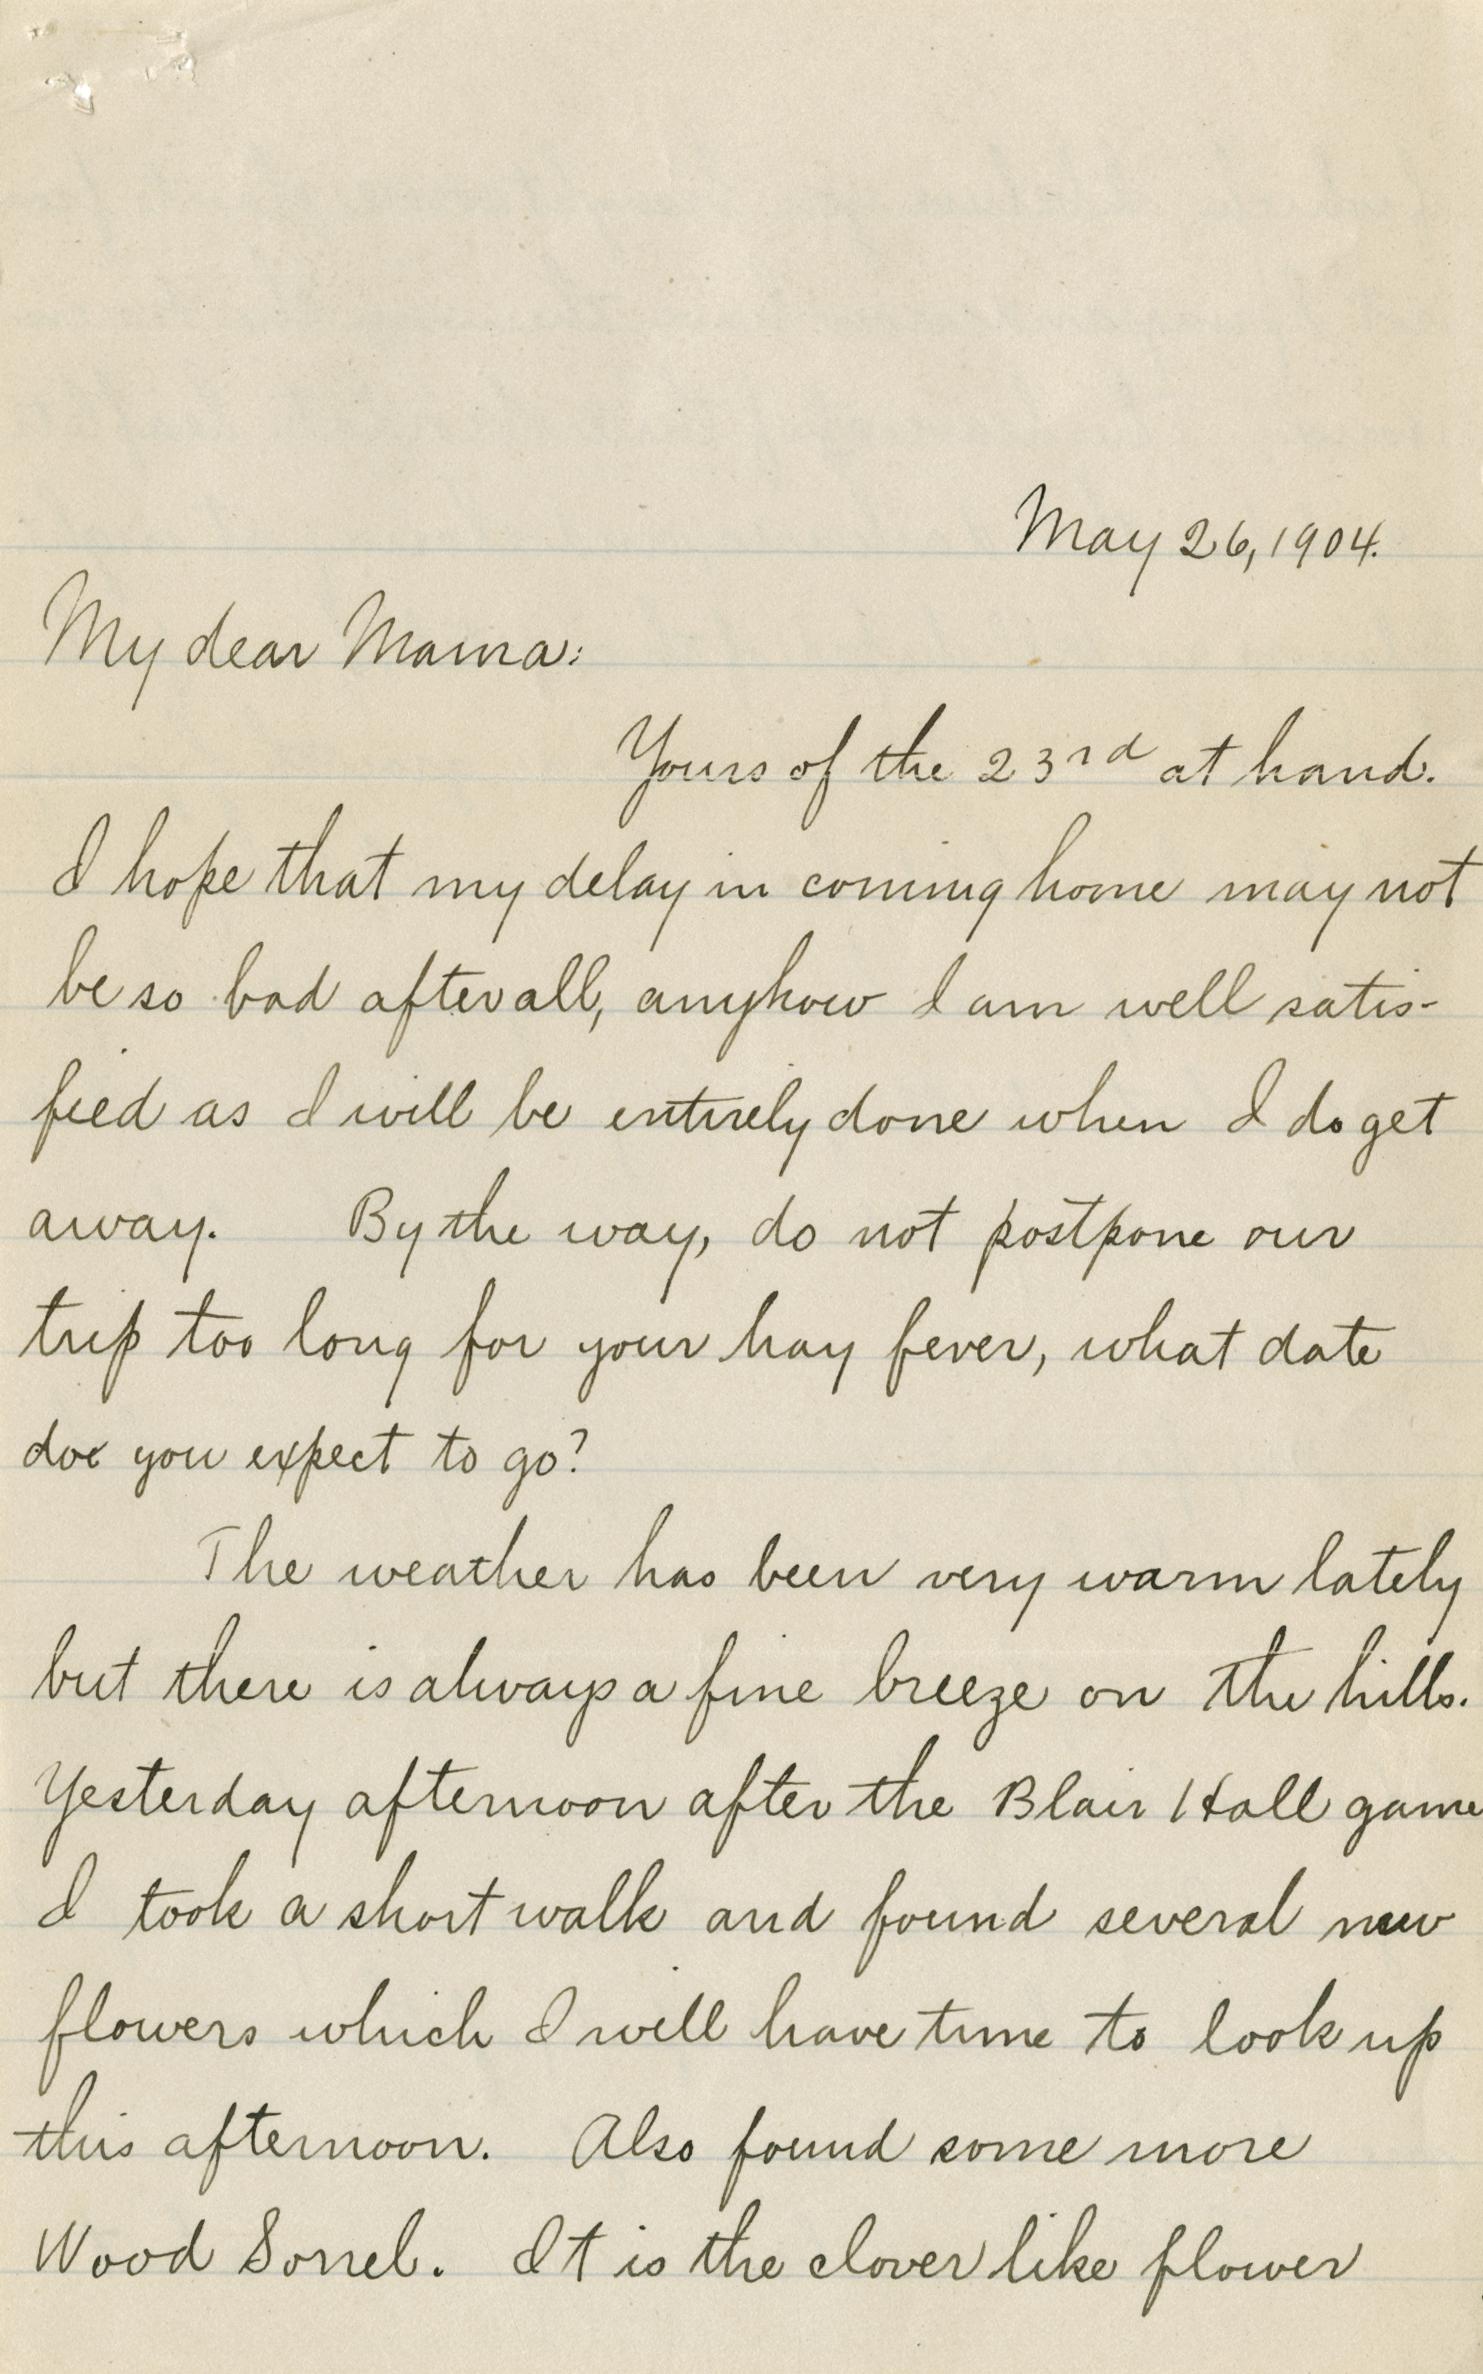 May 26, 1904.
My dear Mama:
Yours of the 23rd at hand.
I hope that my delay in coming home may not
be so bad after all, anyhow I am well satis-
fied as I will be entirely done when I do get
away. By the way, do not postpone our
trip too long for your hay fever, what date
doe you expect to go?
The weather has been very warm lately
but there is always a fine breeze on the hills.
Yesterday afternoon after the Blair Hall game
I took a short walk and found several new
flowers which I will have time to look up
this afternoon. Also found some more
Wood Sorrel. It is the clover like flower